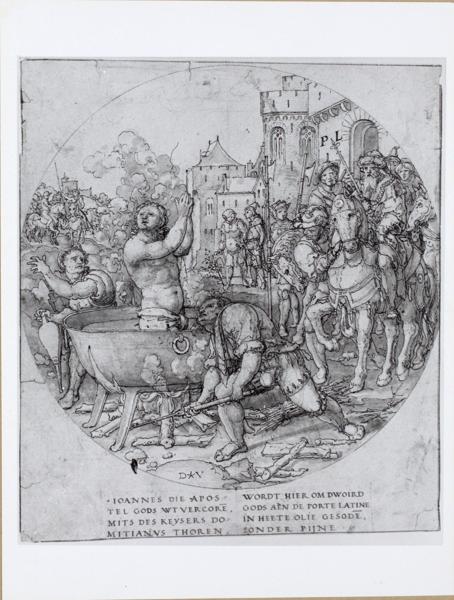 P L
D ★ V
· IOANNES DIE APOS-
TEL GODS WTVERCORĒ,
MITS DES KEYSERS DO-
MITIANVS THOREN
WORDT HIER OM DWOIRD
GODS AEN DE PORTE LATINE
IN HEETE OLIE GESODĒ,
ZONDER PIJNE